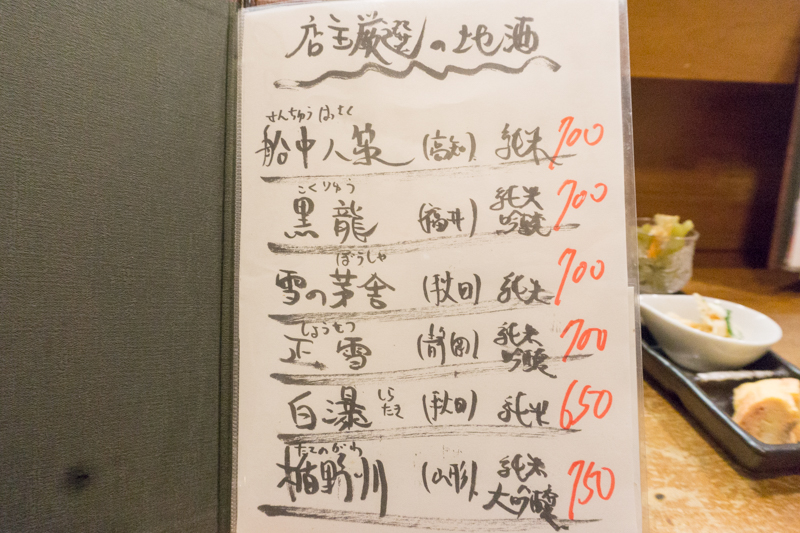 店主厳選の地酒
せんちゅうはっさく
船中八策 (高知) 純米 700
こくりゅう
黒龍 (福井) 純米吟醸 700
ぼうしゃ
雪の茅舎 (秋田) 純米 700
しょうせつ
正雪 (静岡) 純米吟醸 700
しらたき
白瀑 (秋田) 純米 650
たてのがわ
楯野川 (山形) 純米大吟醸 750